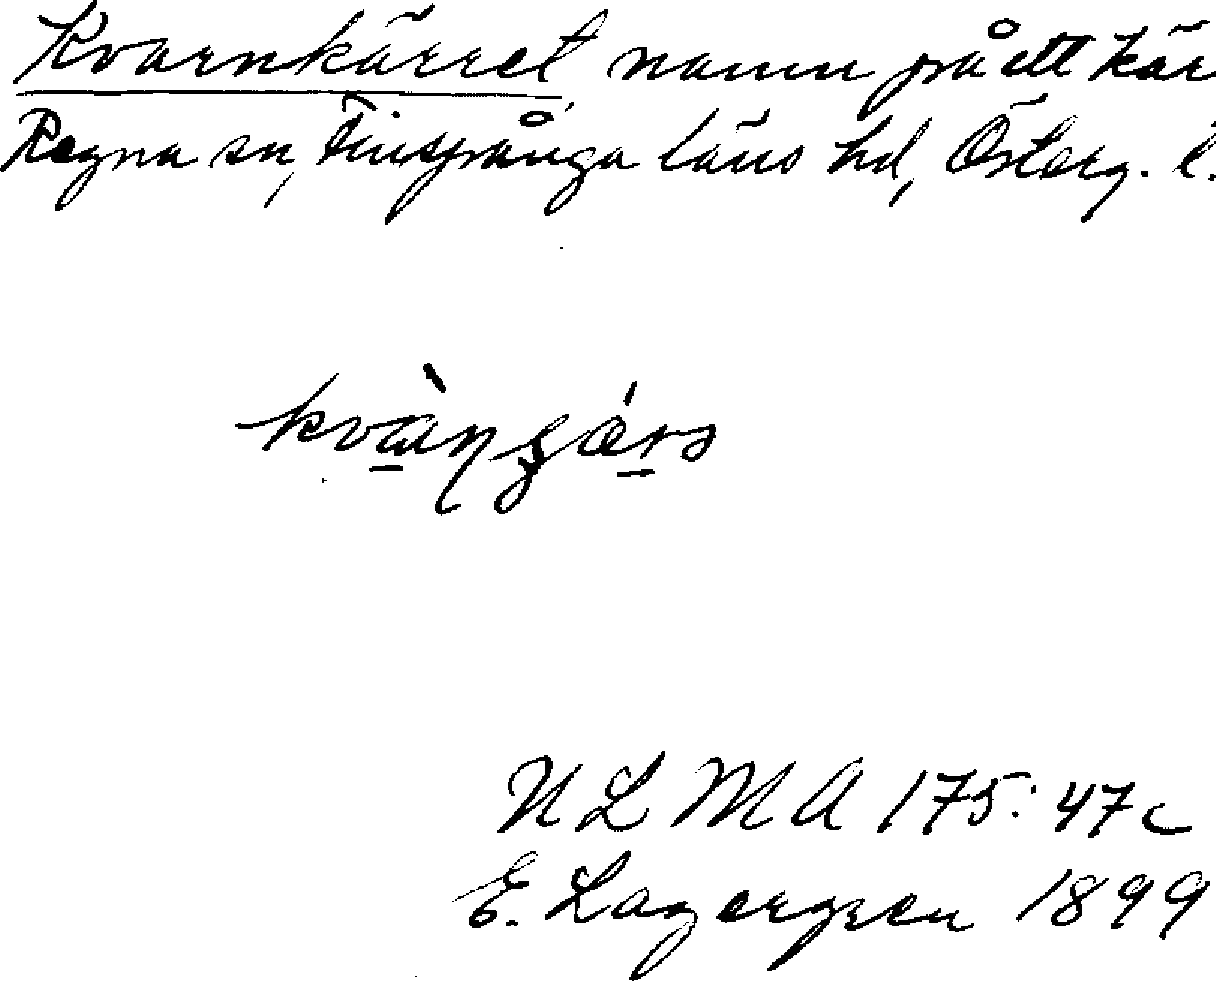 Kvarnkärret, namn på ett kär
Regna sn, Finspånga läns hd, Österg. l.
ULMA 175:47c
E. Lagergren 1899